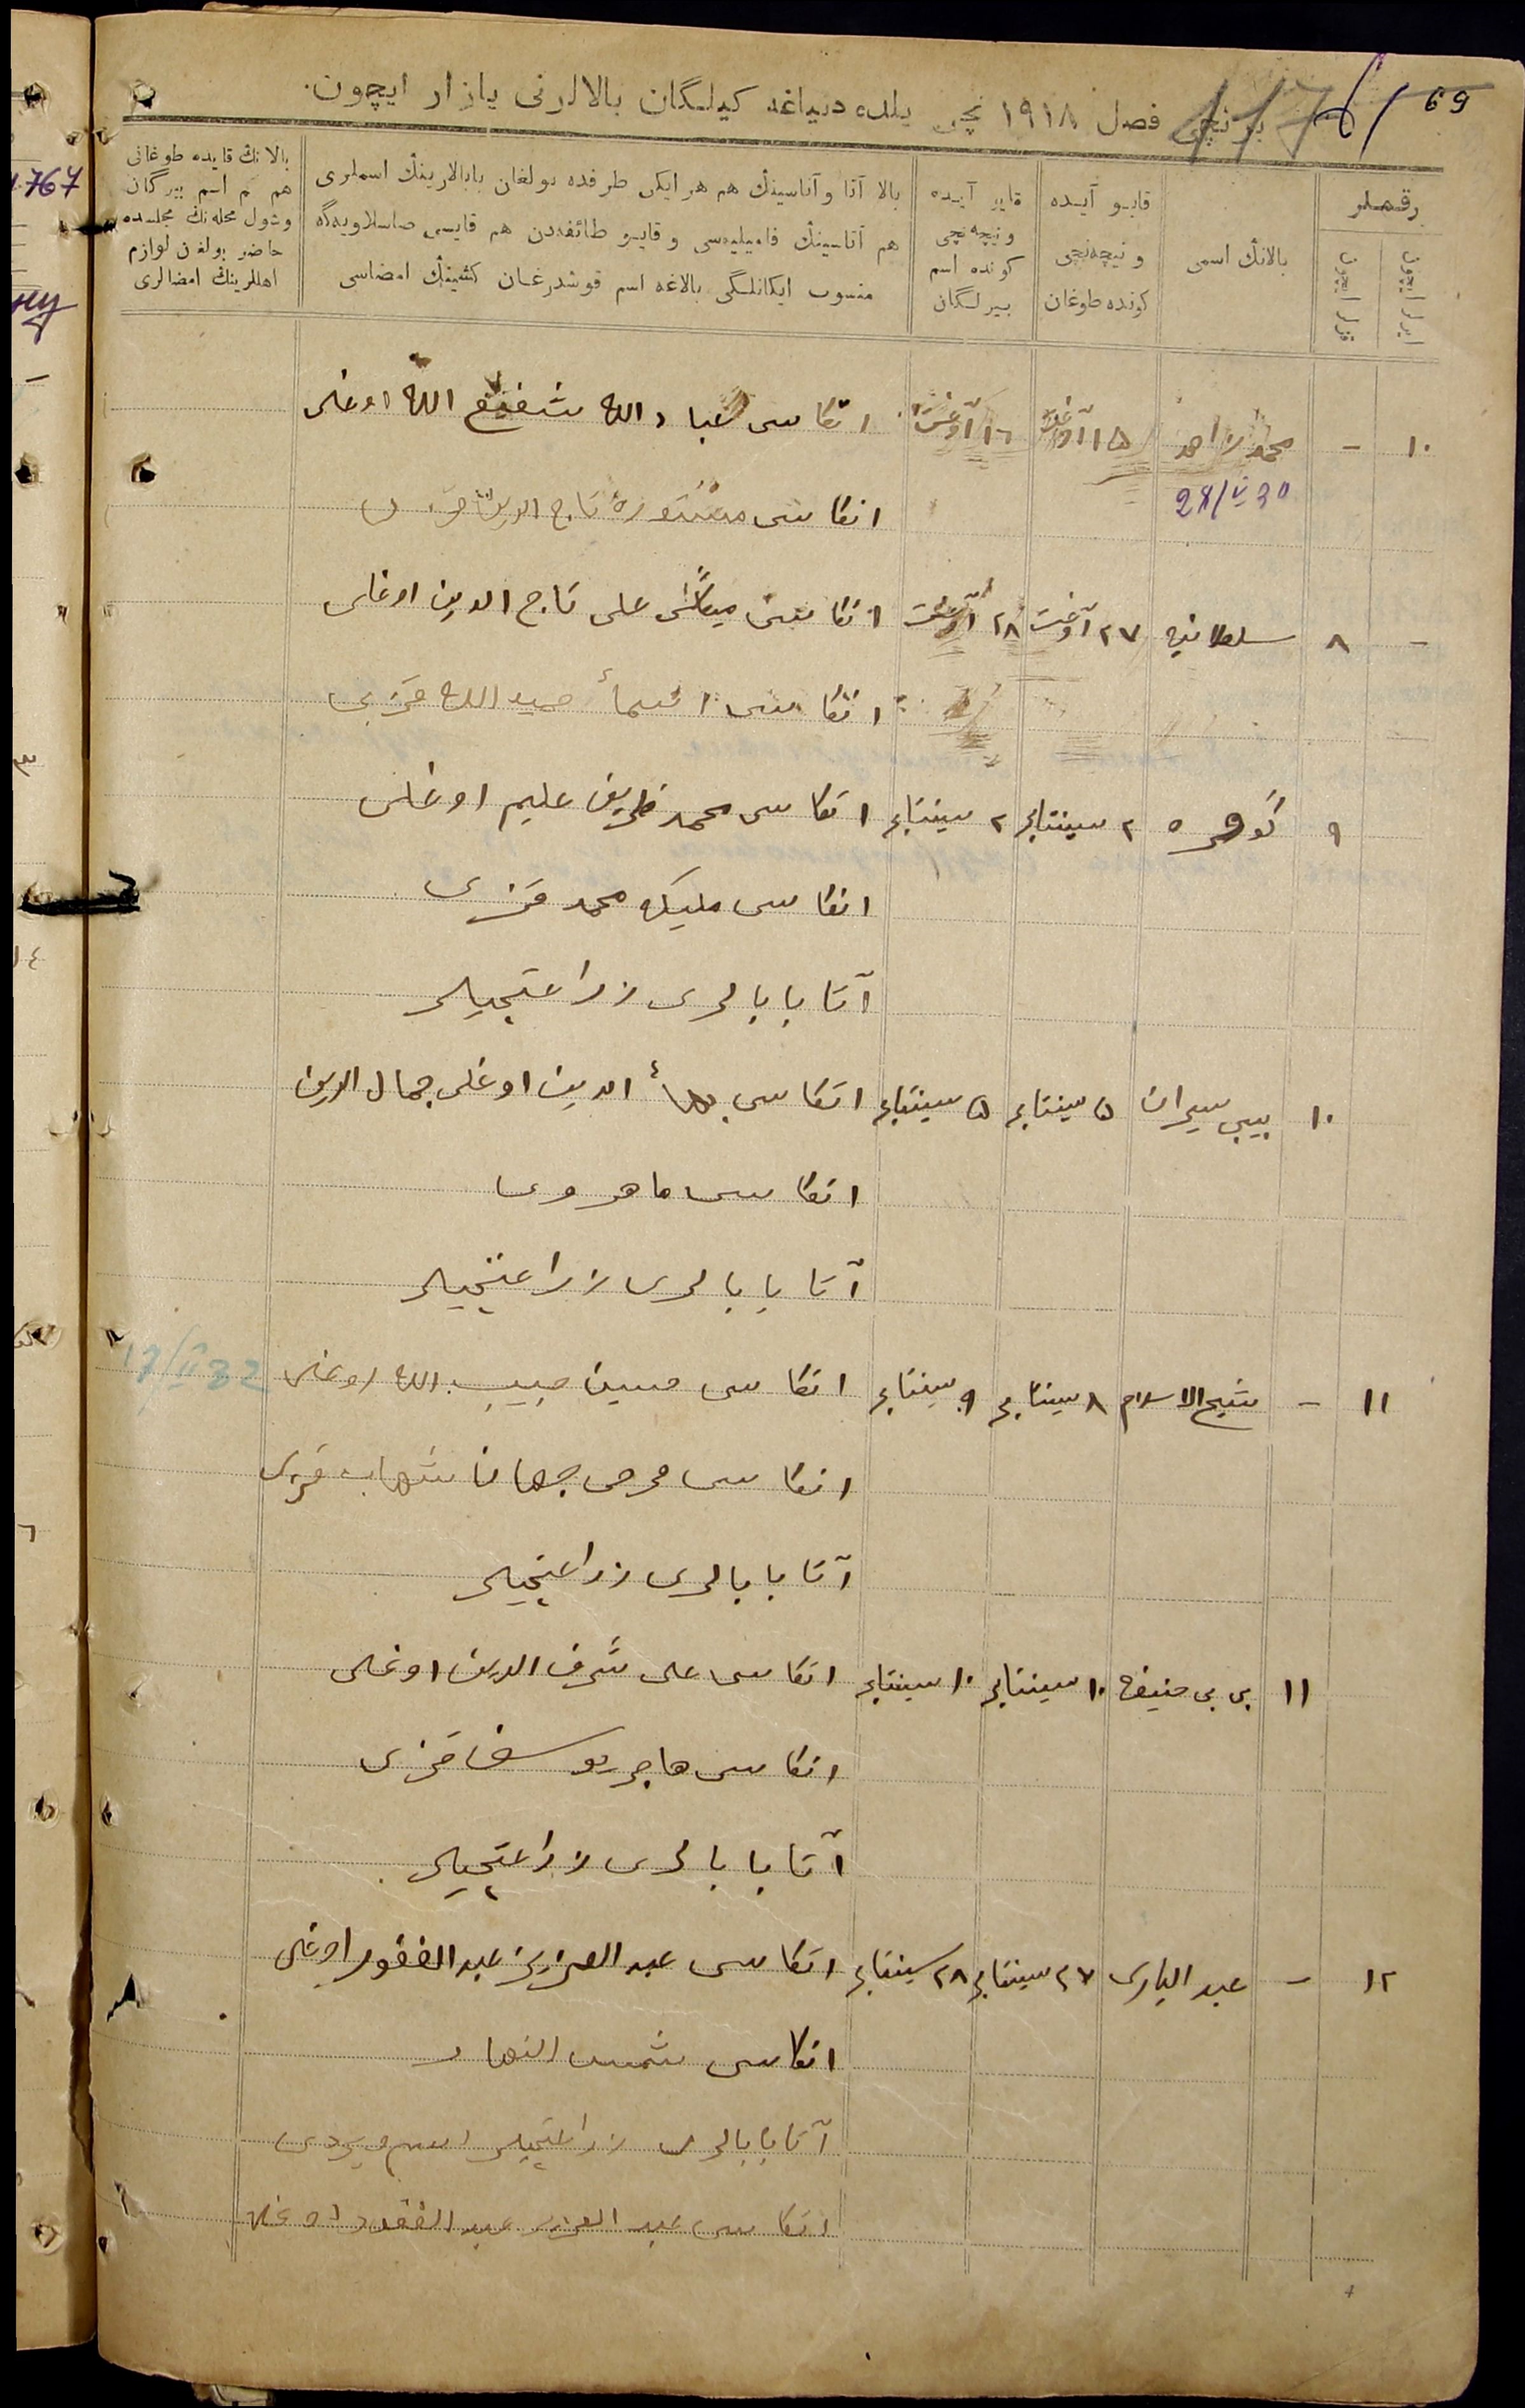 69
برنچی فصل ١٩١٨ نچی یلده دنیاغه کیلگان بالالرنی یازار ایچون.
رقملر
ایرلر ایچون
قزلر ایچون
بالانڭ اسمی
قایو آیده ونیچه‌نچی کونده طوغان
قایو آیده ونیچه‌نچی کونده اسم بیرلگان
بالا آتا و آناسینڭ هم هر ایکی طرفده بولغان بابالارینڭ اسملری
هم آناسینڭ فامیلیه‌سی و قایو طائفه‌دن هم قایسی
منسوب ایکانلگی بالاغه اسم قوشدرغان کشینڭ امضاسی
بالانڭ قایده طوغانی
هم اسم بیرگان
وشول محله‌نڭ مجلسده
حاضر بولغان لوازم
اهللرینڭ امضالری
١٠ – محمد احمد ١٥ آوغست ١٦ آوغست اتکاسی عباد الله شفیع الله اوغلی
28/V 30
انکاسی مستوره تاج الدین قزی
– ٨ سلطانیه ٢٧ آوغست ٢٨ آوغست اتکاسی علی تاج الدین اوغلی
انکاسی اسمأ حمید الله قزی
٩ کوهره ٢ سینتابر ٢ سینتابر اتکاسی محمد ظریف علیم اوغلی
انکاسی ملیکه محمد قزی
آتا بابالری زراعتچیلر
١٠ بیبی سیران ٥ سینتابر ٥ سینتابر اتکاسی بهاء الدین اوغلی جمال الدین
انکاسی ماهروی
آتا بابالری زراعتچیلر
١١ – شیخ الاسلام ٨ سینتابر ٩ سینتابر اتکاسی حسین حبیب الله اوغلی
17/V 32
انکاسی جهان شهاب قزی
آتا بابالری زراعتچیلر
١١ بی بی حنیفه ١٠ سینتابر ١٠ سینتابر اتکاسی علی شرف الدین اوغلی
انکاسی هاجر یوسف قزی
آتا بابالری زراعتچیلر
١٢ – عبد الباری ٢٧ سینتابر ٢٨ سینتابر اتکاسی عبد العزیز عبد الغفور اوغلی
انکاسی شمس النهار
آتا بابالری زراعتچیلر اسم ویردی
اتکاسی عبد العزیز عبد الغفور اوغلی
1767